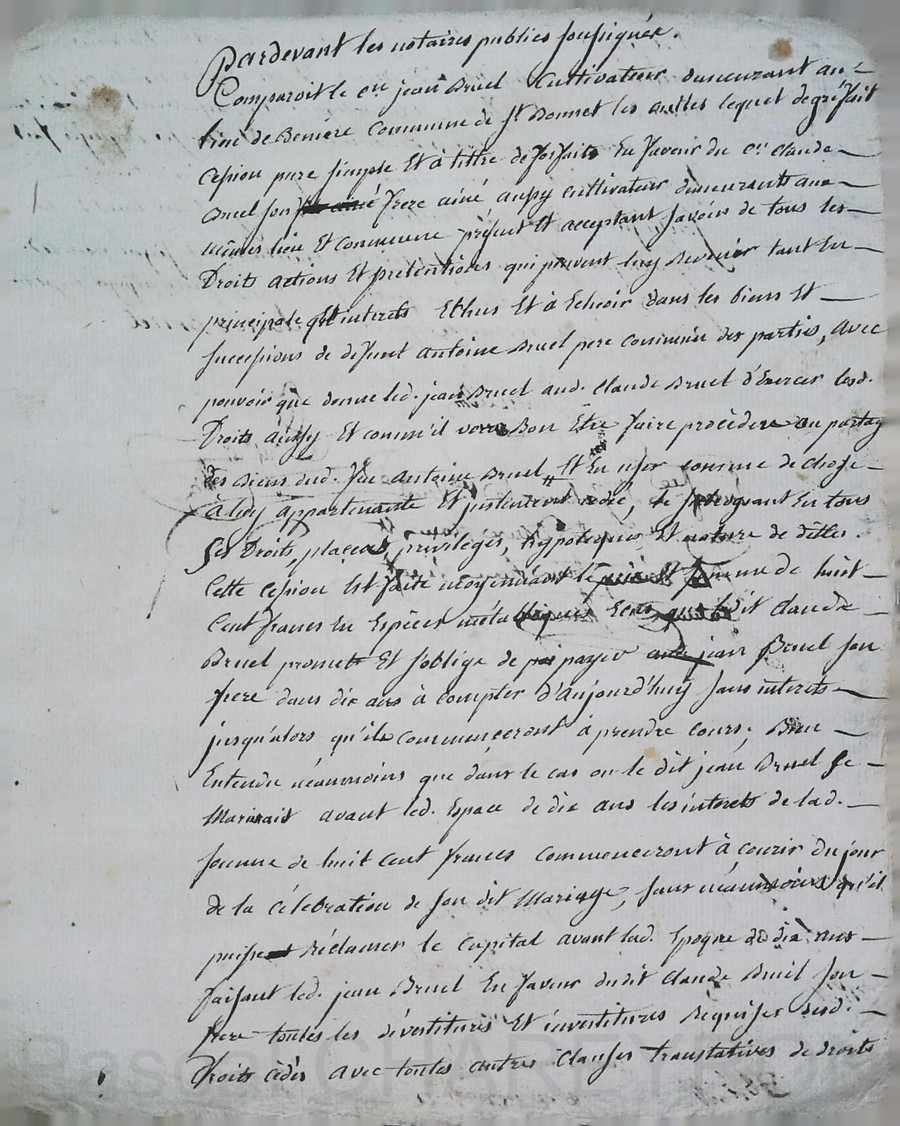 Pardevant les notaires publics soussignés.
Comparoit le cn jean Druel Cultivateur demeurant au
lieu de Commune de St Bonnet les oulles lequel de gré fait
cession pure simple Et à tittre de forfaits En faveur du cn claude
Druel son frere ainé aussy cultivateur demeurant aux
mêmes lieu Et Commune présent Et acceptant savoir de tous les
Droits actions Et pretentions qui peuvent luy Revenir tant En
principale intérets Echus Et à Echoir dans les biens Et
successions de défunt antoine Druel pere commun des parties, avec
pouvoir que donne led. jean Druel aud. Claude Druel d'Exercer lesd.
Droits aussy Et comm'il verra Bon Etre faire procèder au partage
des Biens dud. feu Antoine Druel Et En user comme de chose
à luy appartenante Et justement, le subrogeant En tous
ses Droits, places, privilèges, hypoteques Et nature de dittes.
Cette cession Est faite moyennant somme de huit
Cent francs En Espèces métalliques ledit Claude
Druel promet Et s'oblige de payer jean Druel son
frere dans dix ans à compter d'aujourd'huy sans interets
jusqu'alors qu'ils commenceront à prendre cours; Bien
Entendu néanmoins que dans le cas ou le dit jean Druel se
Marierait avant led. Espace de dix ans les interets de lad.
somme de huit cent francs commenceront à courir du jour
de la célébration de son dit Mariage, sans néanmoins qu'il
puisse Réclamer le Capital avant lad. Epoque de dix ans
faisant led. jean Druel En faveur dudit Claude Druel son
frere toutes les dévestitures Et investitures Requises desd.
Droits cèdés avec toutes autres Clauses translatives de droits